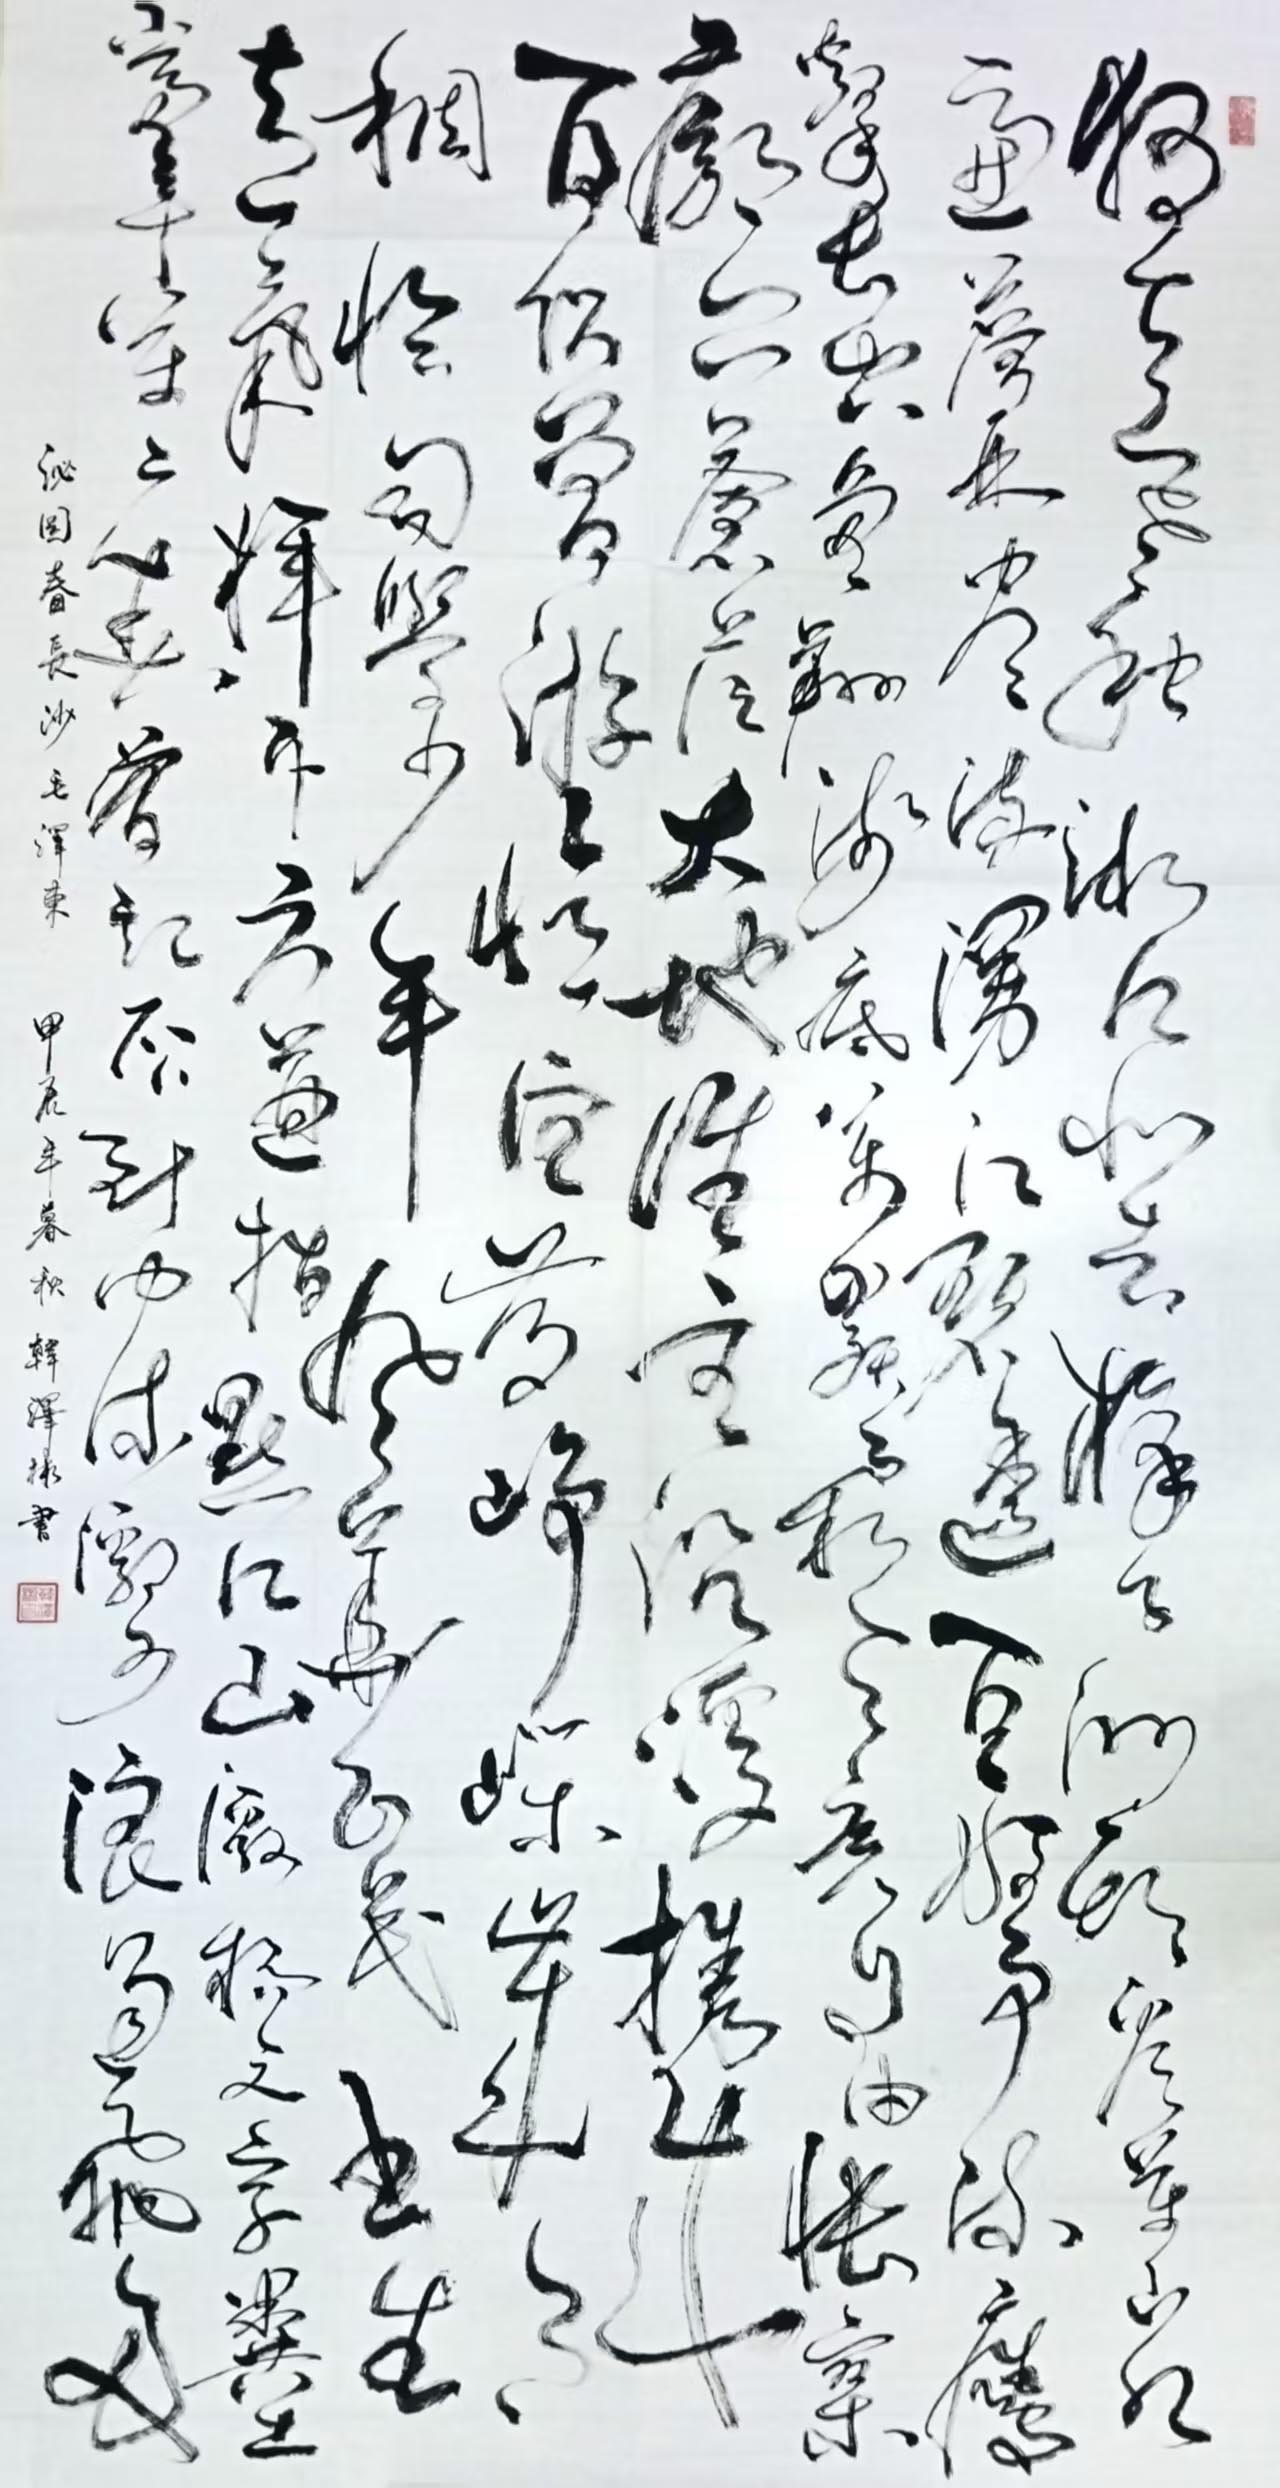 獨立寒秋湘江北去橘子洲頭看萬山紅
遍層林盡染漫江碧透百舸爭流鷹
擊長空魚翔淺底萬類霜天競自由悵寥
廓問蒼茫大地誰主沉浮攜來
百侶曾游憶往昔崢嶸歲月
稠恰同學少年風華正茂書生
意氣揮斥方遒指點江山激揚文字糞土
當年萬戶侯曾記否到中流擊水浪遏飛舟
沁園春長沙毛澤東 甲辰年暮秋韓澤書